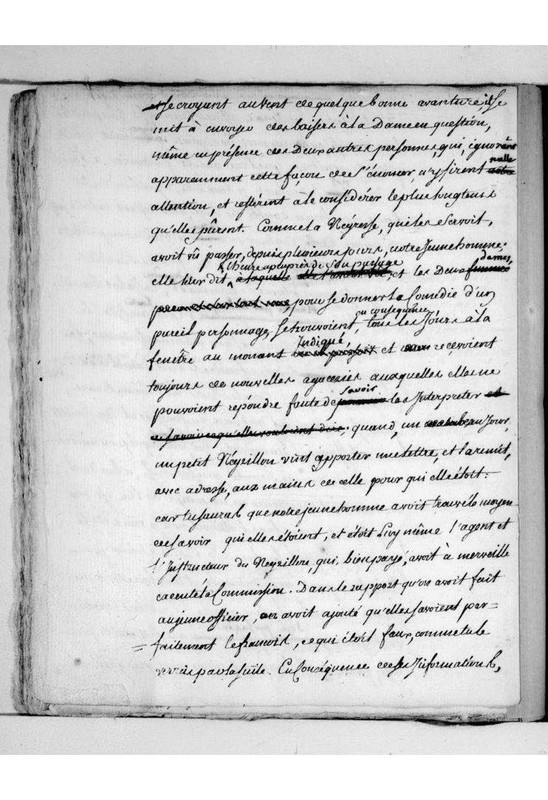 et se croyant au vent de quelque bonne avanture, il se
mit à envoyer des baisers à la Dame en question,
même en présence des deux autres personnes, qui, ignorant
apparamment cette façon de s'énoncer n'y firent nulle
attention, et restèrent à le considérer le plus longtems
qu'elles pûrent. Comme la Négresse, qui les servoit,
avoit vû passer, depuis plusieurs jours, notre jeune homme;
elle leur dit l'heure à peu près de son passage, et les Deux dames,
pour se donner la Comédie d'un
pareil personnage, se trouvoient, en conséquence, tous les Jours à la
fenêtre au moment Indiqué, et recevoient
toujours de nouvelles agaceries auxquelles elles ne
pouvoient répondre faute de savoir les Interpreter
quand, un beau Jour,
un petit Négrillon vint apporter une lettre, et la remit,
avec adresse, aux mains de celle pour qui elle étoit:
car tu sauras que notre jeune homme avoit trouvé le moyen
de savoir qui elles étoient, et étoit Luy même l'agent et
l'Instructeur du Négrillon, qui, bien payé, avoit à merveille
éxécuté la Commission. Dans le rapport qu'on avoit fait
au jeune officier, on avoit ajouté qu'elles savoient par-
= faitement le francois, ce qui étoit faux, comme tu le
verras par la suite. En Conséquence de ses Informations,